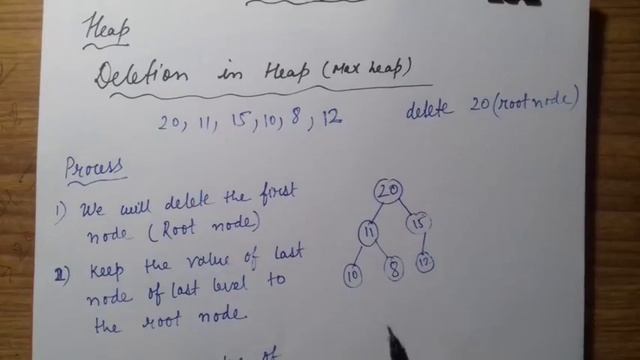 Heap
Deletion in Heap (Max heap)
20, 11, 15, 10, 8, 12
delete 20 (root node)
Process
1) We will delete the first
node (Root node)
2) Keep the value of last
node of last level to
the root node.
20
11
15
10
8
12
of